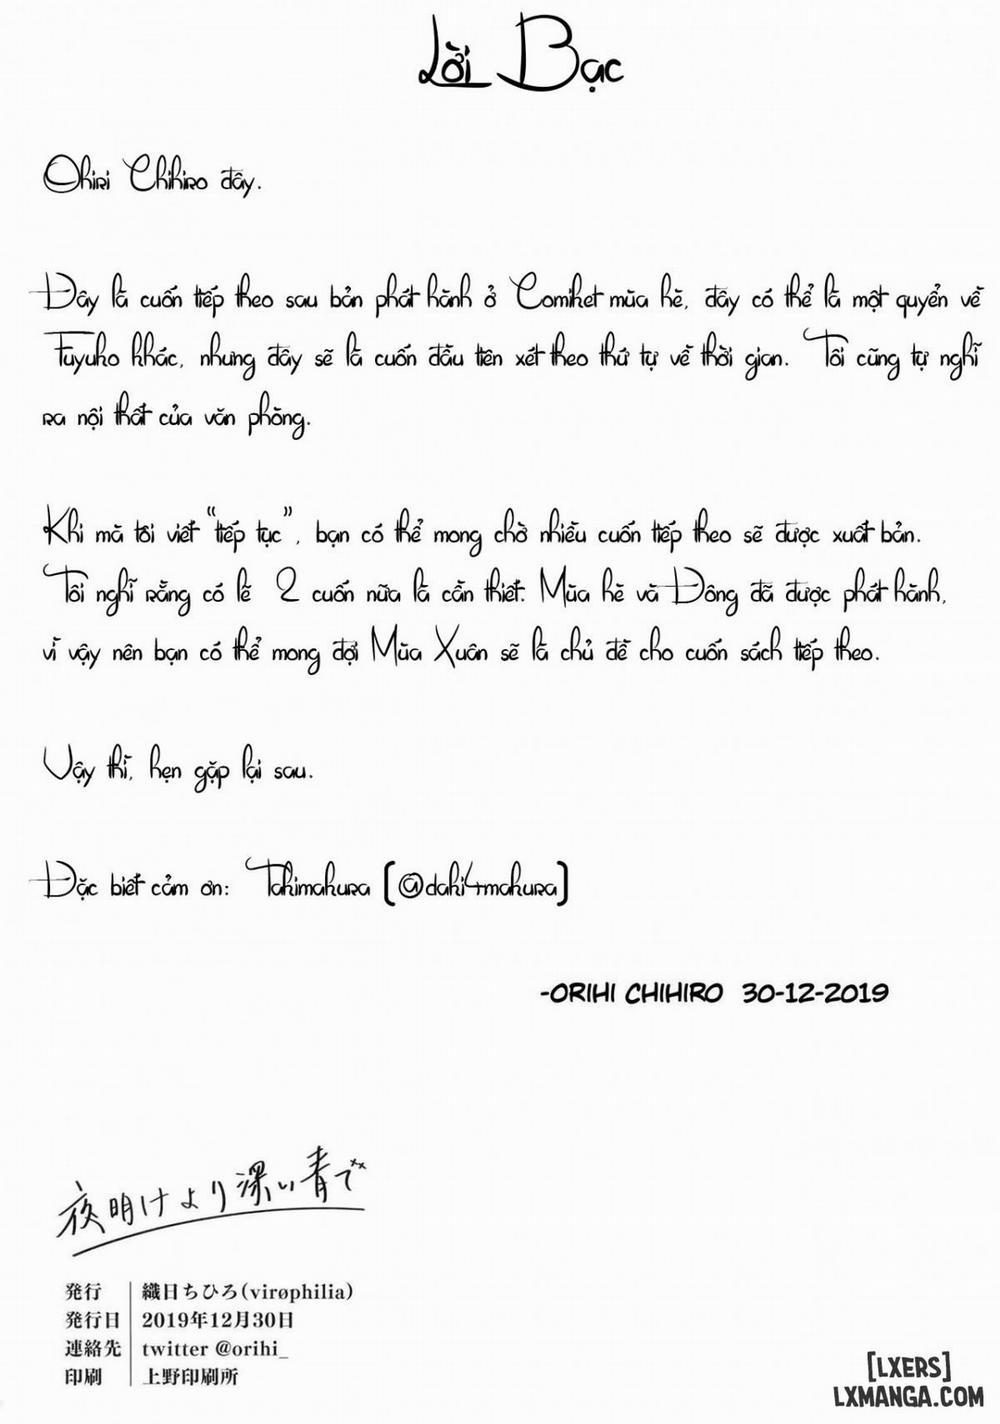 Lời Bạc
Ohiri Chihiro đây.
Đây là cuốn tiếp theo sau bản phát hành ở Comiket mùa hè, đây có thể là một quyển về
Fuyuko khác, nhưng đây sẽ là cuốn đầu tiên xét theo thứ tự về thời gian. Tôi cũng tự nghĩ
ra nội thất của văn phòng.
Khi mà tôi viết "tiếp tục", bạn có thể mong chờ nhiều cuốn tiếp theo sẽ được xuất bản.
Tôi nghĩ rằng có lẽ 2 cuốn nữa là cần thiết. Mùa hè và Đông đã được phát hành,
vì vậy nên bạn có thể mong đợi Mùa Xuân sẽ là chủ đề cho cuốn sách tiếp theo.
Vậy thì, hẹn gặp lại sau.
Đặc biết cảm ơn: Takimakura (@daki4makura)
-ORIHI CHIHIRO 30-12-2019
夜明けより深い青で
発行 織日ちひろ(virøphilia)
発行日 2019年12月30日
連絡先 twitter @orihi_
印刷 上野印刷所
[LXERS]
LXMANGA.COM